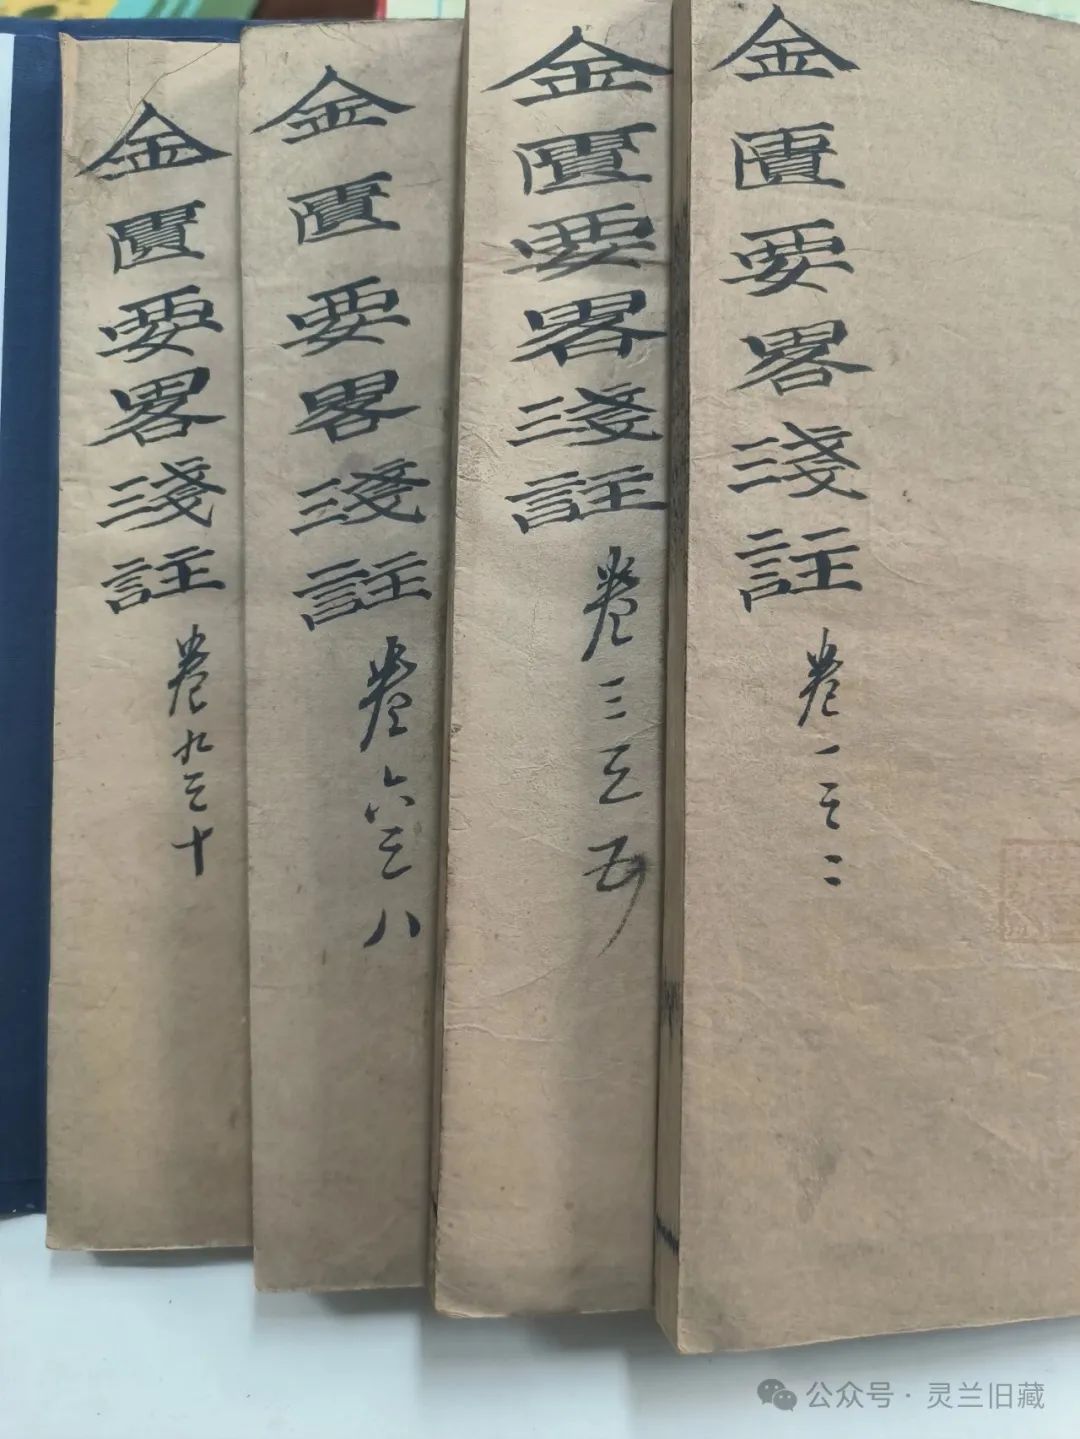 金匱要畧淺註 卷一至二
金匱要畧淺註 卷三至五
金匱要畧淺註 卷六至八
金匱要畧淺註 卷九至十
公众号·灵兰旧藏